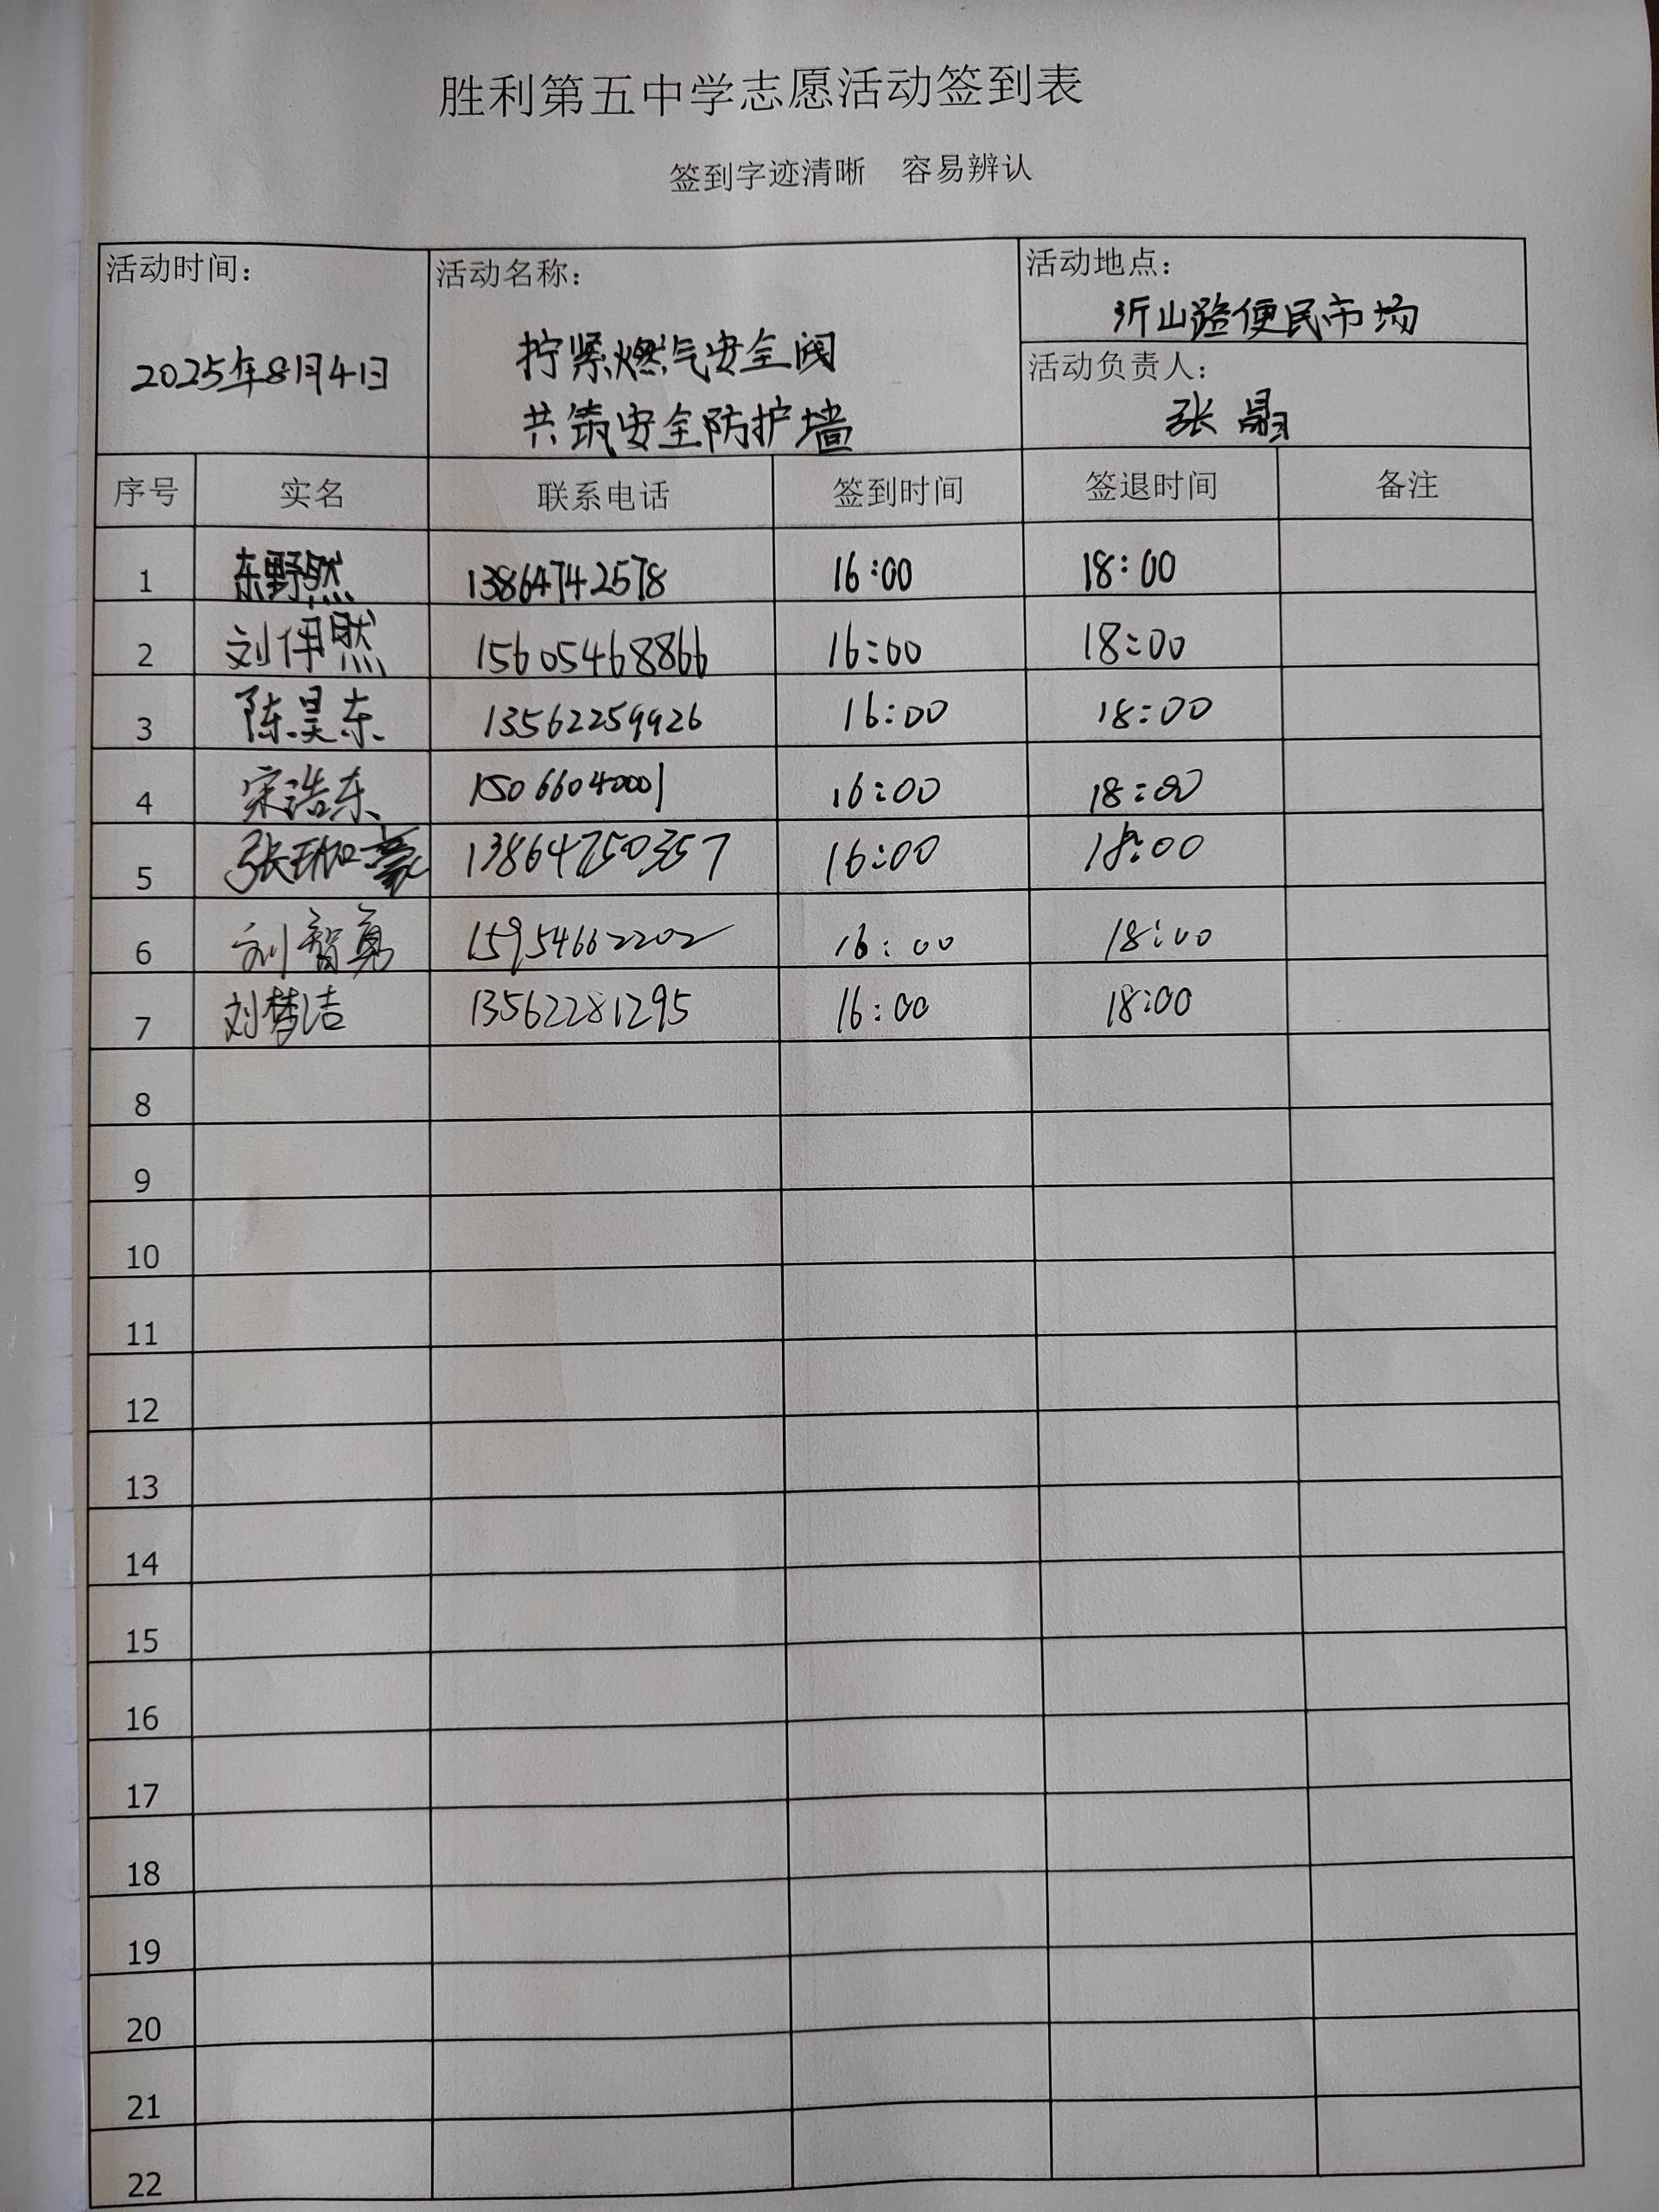 胜利第五中学志愿活动签到表
签到字迹清晰 容易辨认
活动时间： 活动名称： 活动地点：
沂山路便民市场
2025年8月4日 拧紧燃气安全阀 活动负责人：
共筑安全防护墙 张
序号 实名 联系电话 签到时间 签退时间 备注
1 东野然 13864742578 16:00 18:00
2 刘伊然 15605468866 16:00 18:00
3 陈昊东 13562259926 16:00 18:00
4 宋浩东 15066040001 16:00 18:00
5 张珈豪 13864750357 16:00 18:00
6 刘智勇 15954662202 16:00 18:00
7 刘梦洁 13562281295 16:00 18:00
8
9
10
11
12
13
14
15
16
17
18
19
20
21
22